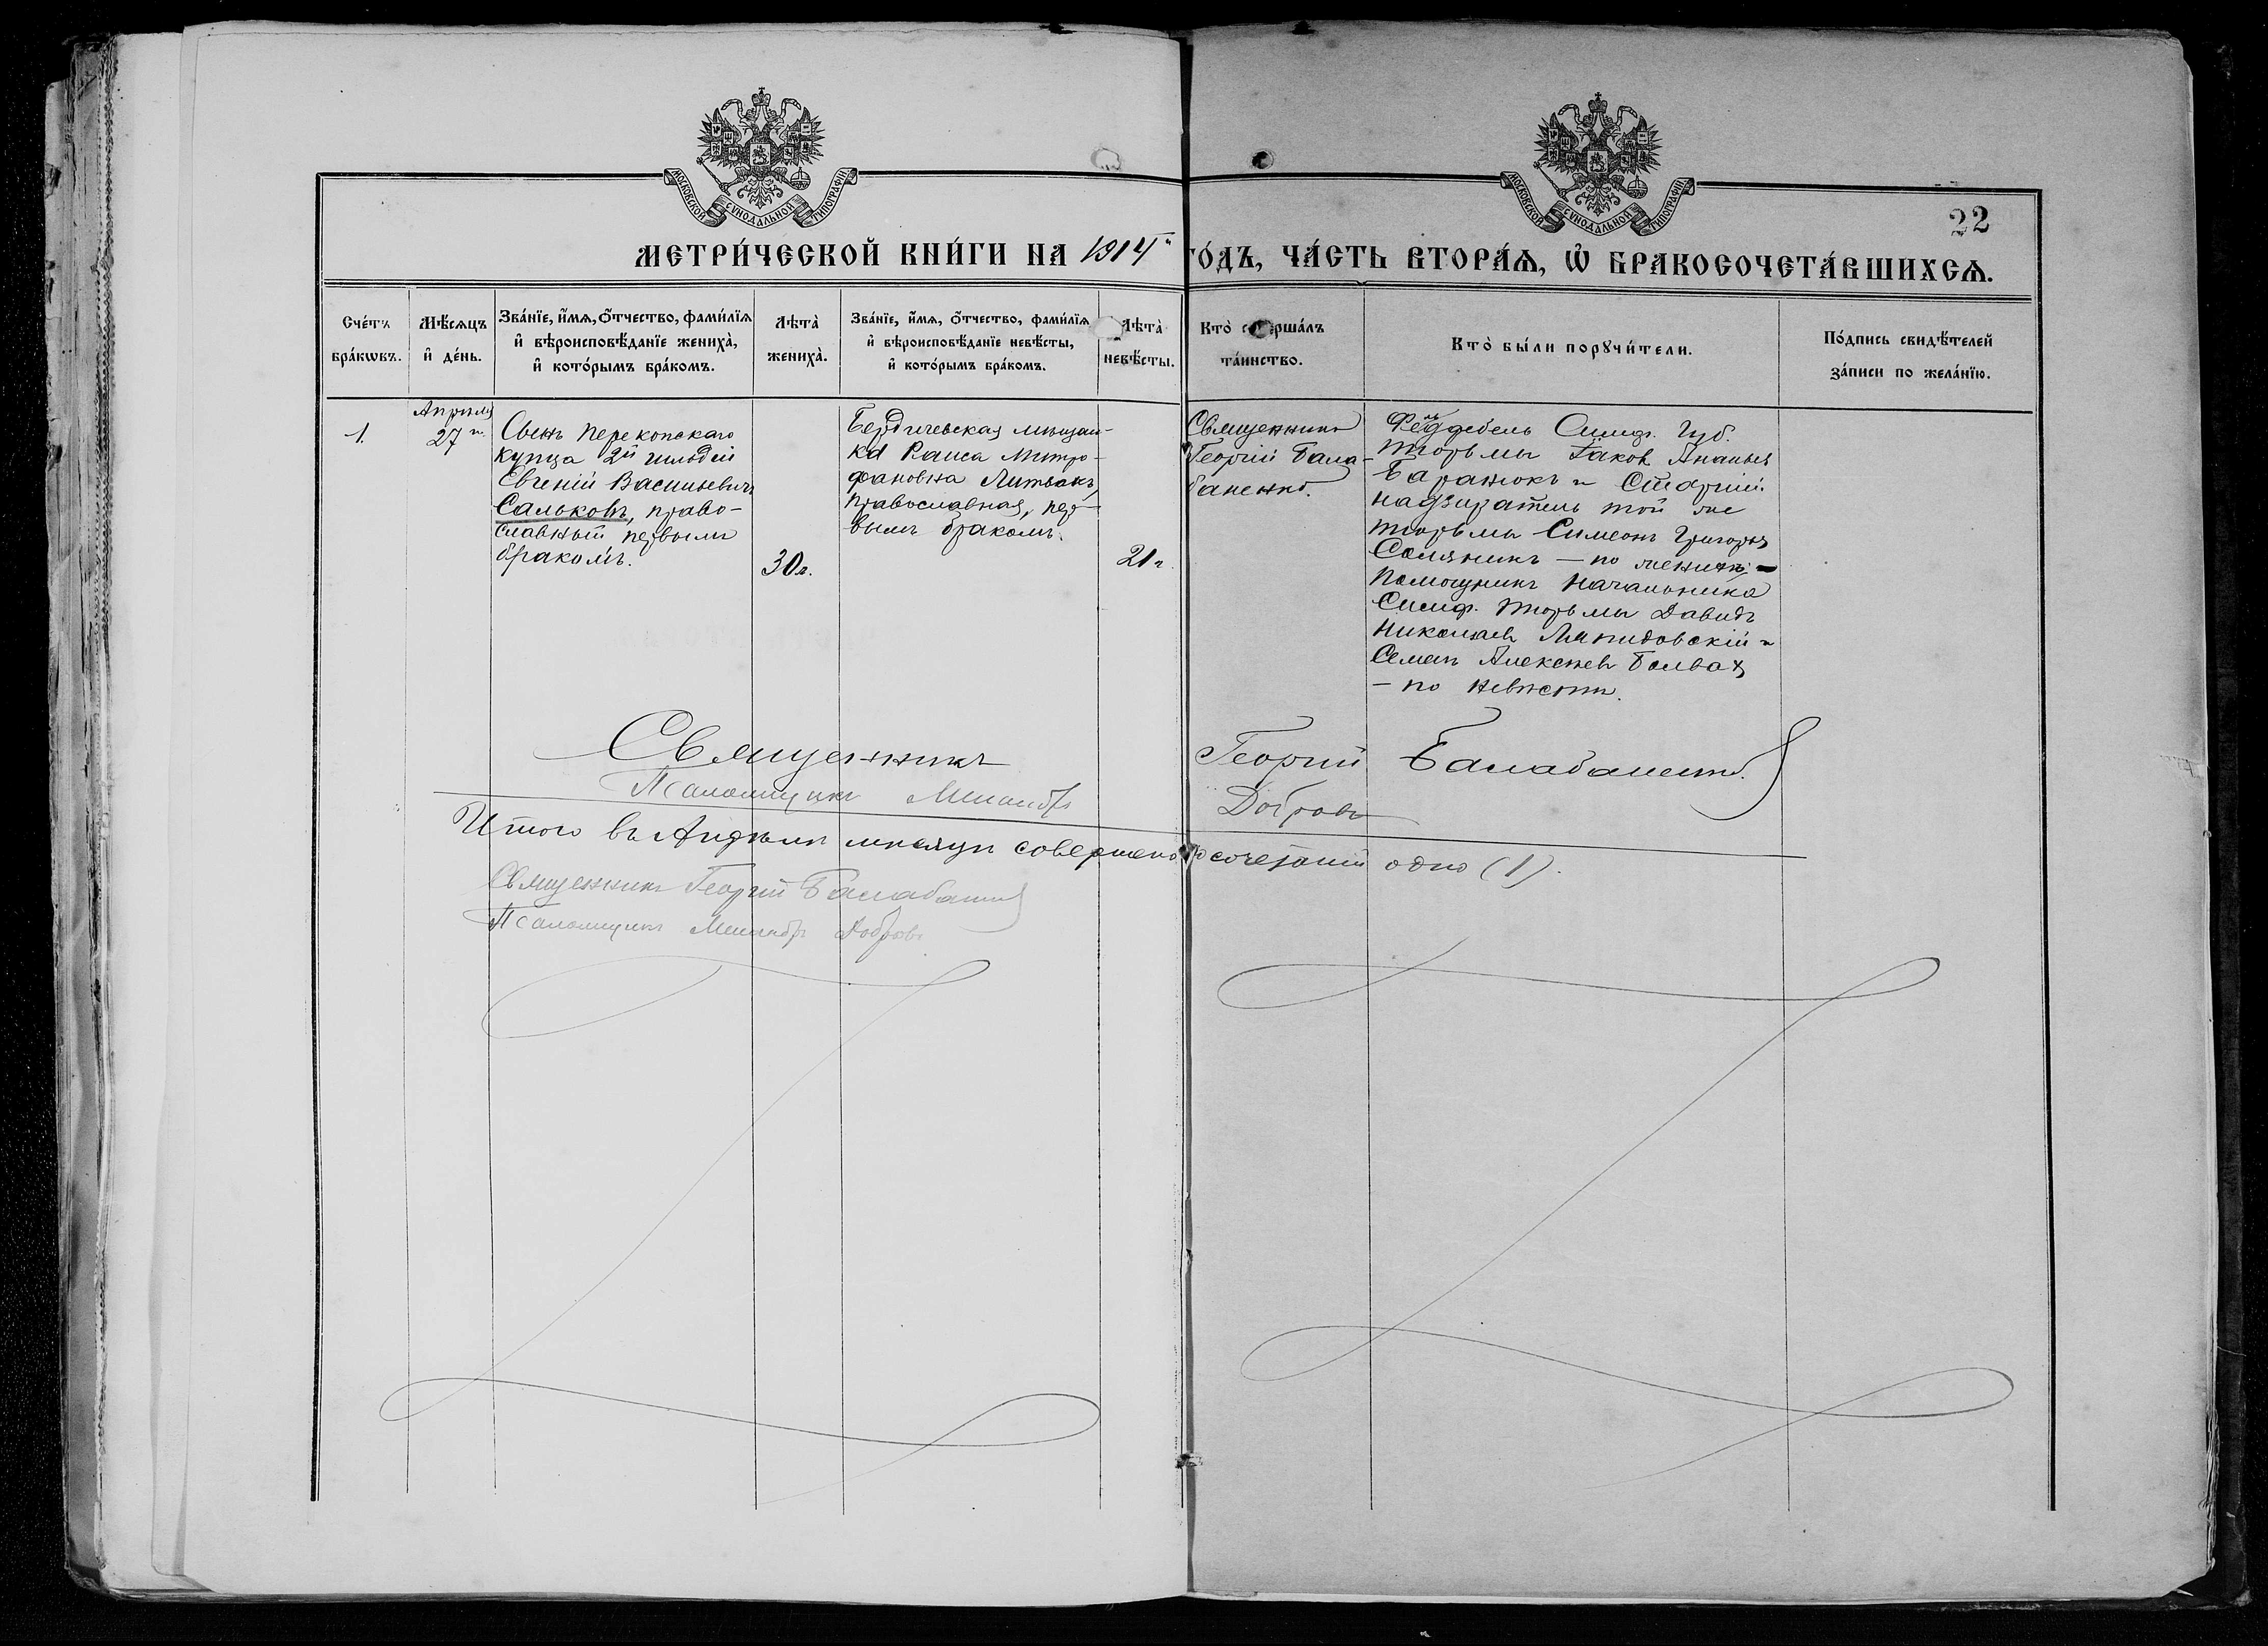 МОСКОВСКОЙ СѴНОДАЛЬНОЙ ТИПОГРАФІИ.
МОСКОВСКОЙ СѴНОДАЛЬНОЙ ТИПОГРАФІИ.
22
МЕТРИ́ЧЕСКОЙ КНИ́ГИ НА 1914 ГО́ДЪ, ЧА́СТЬ ВТОРА́Ѧ, Ѽ БРАКОСОЧЕТА́ВШИХСѦ.
Сче́тъ
бра́кѡвъ.
Мѣ́сѧцъ
и҆ де́нь.
Зва́нїе, и҆́мѧ, ѻ҆́тчество, фами́лїѧ
и҆ вѣроисповѣ́данїе жениха̀,
и҆ кото́рымъ бра́комъ.
Лѣта̀
жениха̀.
Зва́нїе, и҆́мѧ, ѻ҆́тчество, фами́лїѧ
и҆ вѣроисповѣ́данїе невѣ́сты,
и҆ кото́рымъ бра́комъ.
Лѣта̀
невѣ́сты.
Кто̀ соверша́лъ
та́инство.
Кто̀ бы́ли порꙋчи́тели.
По́дпись свидѣ́телей
за́писи по жела́нїю.
1.
Апрѣля
27
Сынъ Перекопскаго
купца 2й гильдіи
Евгеній Васильевичъ
Сальковъ, право-
славный первымъ
бракомъ.
30 л.
Бердичевская мѣщан-
ка Раиса Митро-
фановна Литвакъ,
православная, пер-
вымъ бракомъ.
21 г.
Священникъ
Георгій Бала-
баненко.
Фельдфебель Симф. Губ.
тюрьмы Іаковъ Ананьев
Баранюкъ и Старшій
надзиратель той же
тюрьмы Симеонъ Григорьев
Соляникъ — по женихѣ; —
Помощникъ Начальника
Симф. тюрьмы Давидъ
Николаев и
Семен Алексѣев
— по невѣстѣ.
Священникъ Георгій Балабаненко.
Псаломщикъ Менандръ Добровъ
Итого въ Апрѣлѣ мѣсяцѣ совершено сочетаній одно (1).
Священникъ Георгій Балабаненко
Псаломщикъ Менандръ Добровъ